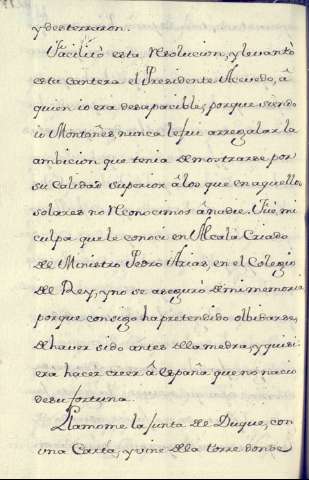 y desterraron.
Facilitó esta Resolucion, y levantò
esta cantera el Presidente Acevedo, â
quien io era desapacible, porque siendo
io Montañes, nunca le fui a rregalar la
ambicion que tenia de mostrarse por
su calidad superior â los que en aquellos
solares no Reconocimos â nadie. Fuè mi
culpa que le conoci en Alcalà Criado
del Ministro Pedro Arias, en el Colegio
del Rey, y no se asegurò de mi memoria
porque consigo ha pretendido olbidarse,
de haver sido antes de la medra, y quisi
era hacer creer â España que no nacio
de su fortuna.
Llamome la Junta del Duque, con
una Carta, y vine de la torre donde